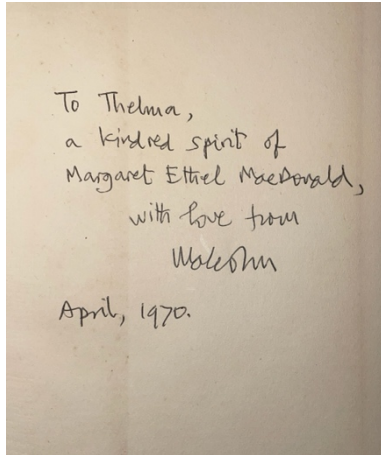 To Thelma,
a kindred spirit of
Margaret Ethel MacDonald,
with love from
Malcolm
April, 1970.